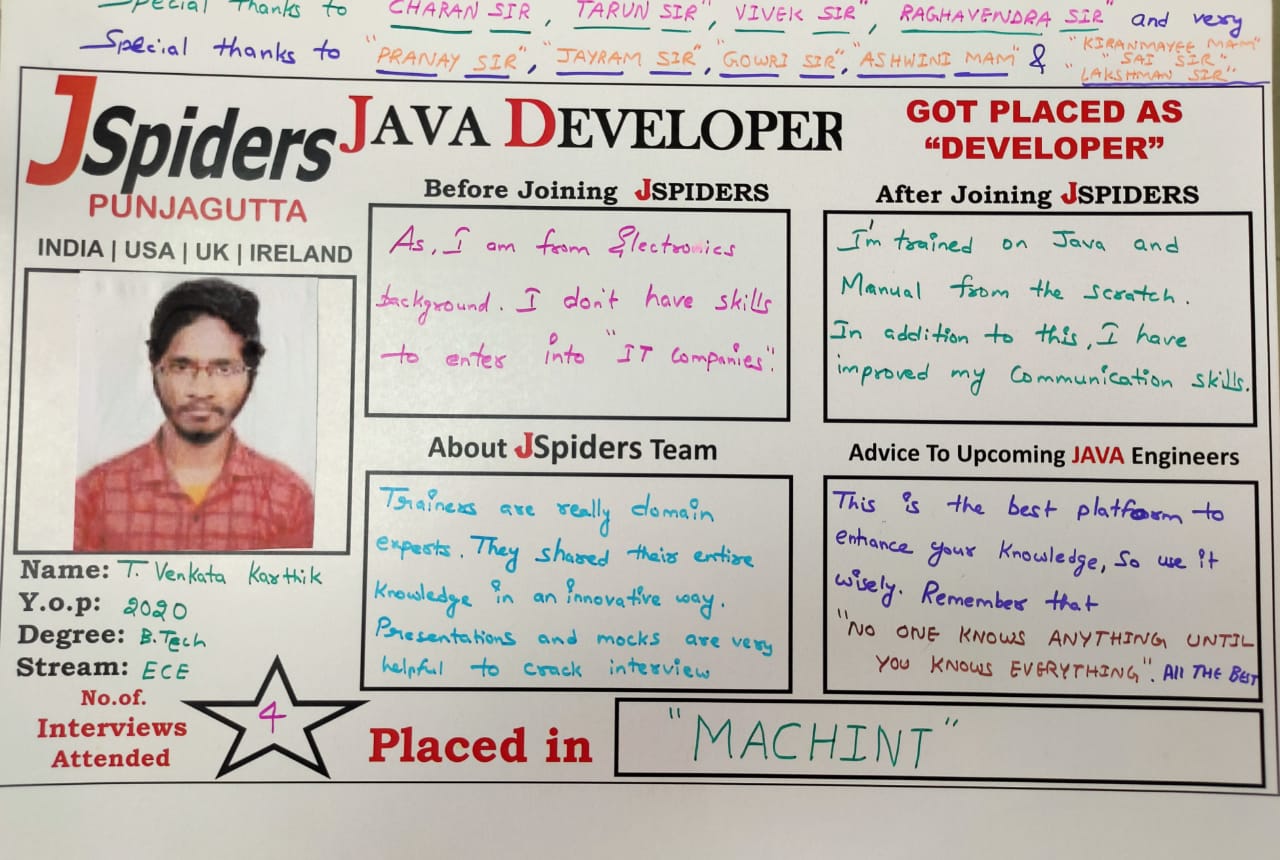 Special thanks to "CHARAN SIR", "TARUN SIR", "VIVEK SIR", "RAGHAVENDRA SIR" and very
Special thanks to "PRANAY SIR", "JAYRAM SIR", "GOWRI SIR", "ASHWINI MAM" & "KIRANMAYEE MAM"
"SAI SIR"
"LAKSHMAN SIR"
JSpiders
PUNJAGUTTA
INDIA | USA | UK | IRELAND
JAVA DEVELOPER
GOT PLACED AS
“DEVELOPER”
Before Joining JSPIDERS
As, I am from Electronics
background. I don't have skills
to enter into "IT Companies".
After Joining JSPIDERS
I'm trained on Java and
Manual from the scratch.
In addition to this, I have
improved my Communication skills.
About JSpiders Team
Trainers are really domain
experts. They shared their entire
Knowledge in an innovative way.
Presentations and mocks are very
helpful to crack interview
Advice To Upcoming JAVA Engineers
This is the best platform to
enhance your Knowledge, So use it
wisely. Remember that
"NO ONE KNOWS ANYTHING UNTIL
YOU KNOWS EVERYTHING". All THE BEST
Name: T. Venkata Karthik
Y.o.p: 2020
Degree: B.Tech
Stream: ECE
No.of.
Interviews
Attended
4
Placed in "MACHINT"